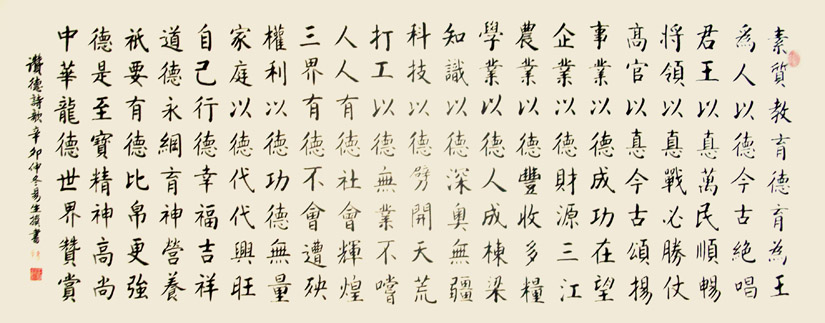 素質教育德育為王
為人以德今古絕唱
君王以真萬民順暢
將領以真戰必勝仗
高官以真今古頌揚
事業以德成功在望
企業以德財源三江
農業以德豐收多糧
學業以德人成棟梁
知識以德深奧無疆
科技以德劈開天荒
打工以德無業不嚐
人人有德社會輝煌
三界有德不會遭殃
權利以德功德無量
家庭以德代代興旺
自己行德幸福吉祥
道德永綱育神營養
祇要有德比帛更強
德是至寶精神高尚
中華龍德世界贊賞
讚德詩歌辛卯仲冬書